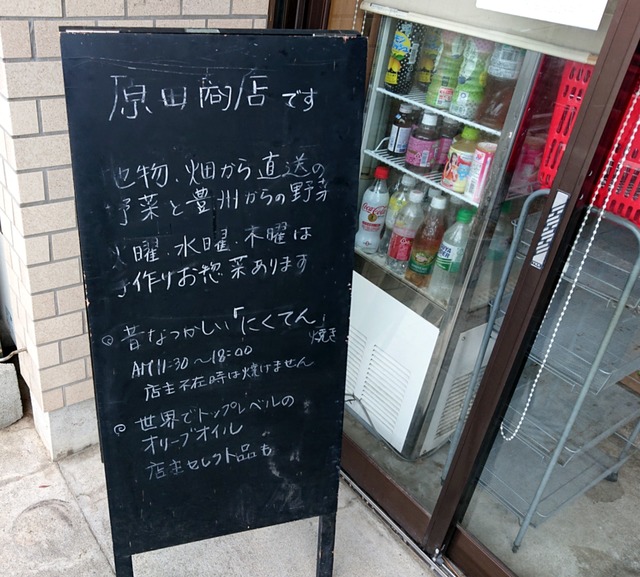 原田商店です
地物、畑から直送の
野菜と豊州からの野菜
火曜、水曜、木曜は
手作りお惣菜あります
昔なつかしい「にくてん」焼き
AM11:30〜18:00
店主不在時は焼けません
世界でトップレベルの
オリーブオイル
店主セレクト品も